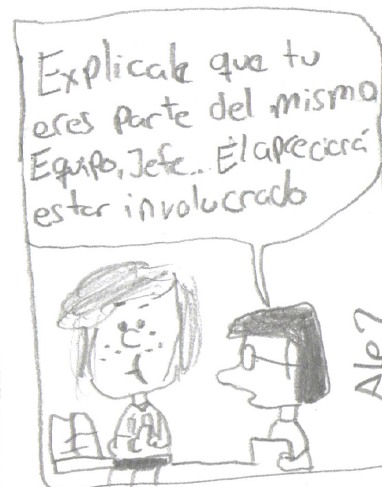 Explicale que tu
eres parte del mismo
Equipo, Jefe... El apreciará
estar involucrado
Ale?